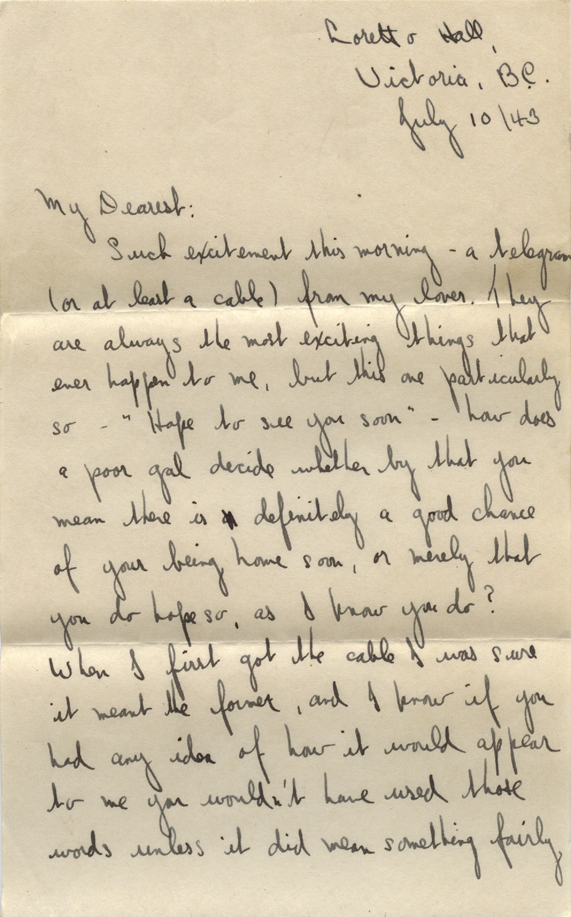 Loretto Hall,
Victoria, BC.
July 10/43
My Dearest:
Such excitement this morning - a telegram
(or at least a cable) from my lover. They
are always the most exciting things that
ever happen to me, but this one particularly
so - "Hope to see you soon" - how does
a poor gal decide whether by that you
mean there is definitely a good chance
of your being home soon, or merely that
you do hope so, as I know you do?
When I first got the cable I was sure
it meant the former, and I know if you
had any idea of how it would appear
to me you wouldn't have used those
words unless it did mean something fairly